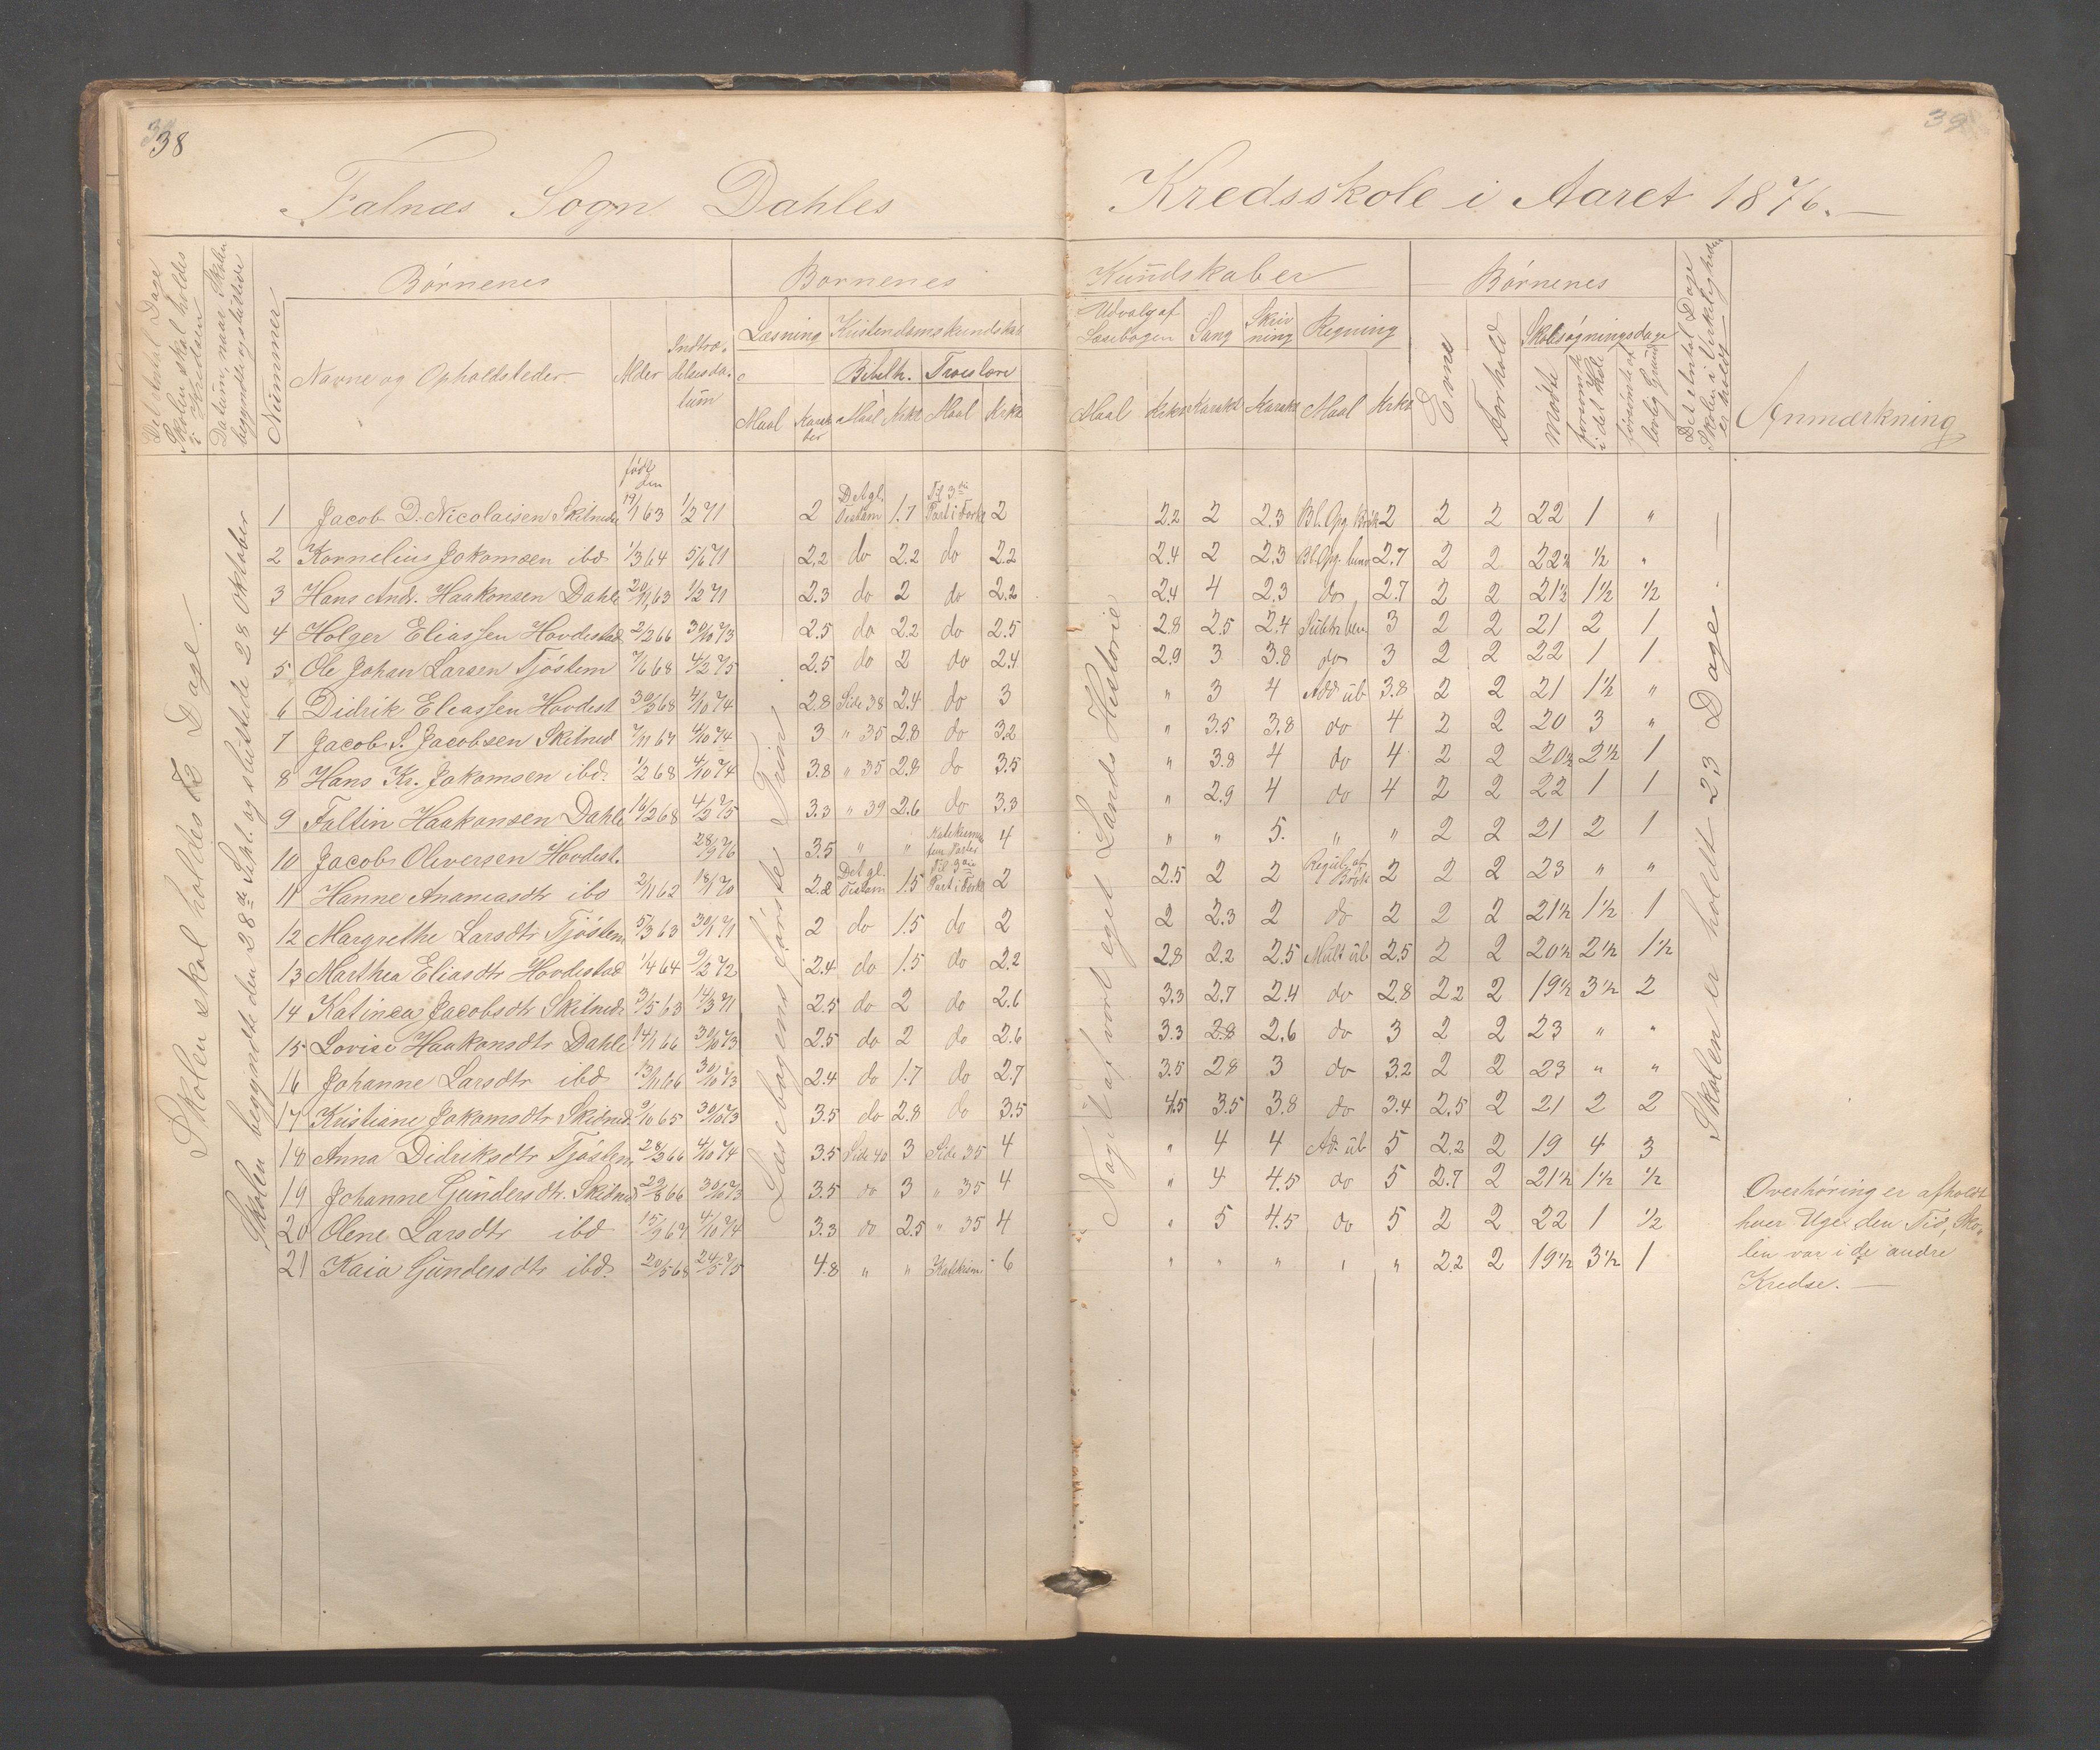 38
39
Falnæs Sogn Dahles Kredsskole i Aaret 1876.
Det Antal Dage Skolen skal holdes i Kredsen
Datum, naar Skolen begyndte og sluttede
Nummer
Børnenes
Navne og Opholdsteder
Alder
Indtrædelsesdatum
Børnenes Kundskaber
Læsning
Maal
Karakter
Kristendomskundskab
Bibelh.
Maal
Krkt
Troeslære
Maal
Krkt
Udvalg af Læsebogen
Maal
Sang
Skrivning
Regning
Maal
Krkt
Børnenes
Evne
Forhold
Skolesøgningsdage
Mødte
forsømte i det Hele
forsømte af lovlig Grund
Det Antal Dage Skolen i Virkeligheden er holdt
Anmærkning
Skolen skal holdes 72 Dage.
Skolen begyndte den 28de Sept. og sluttede 28 Oktober
Læsebogens første Trin
Noget af vort eget Lands Historie
Skolen er holdt 23 Dage.
født den
1 Jacob D. Nicolaisen Skitnad 19/1 63 1/2 71 2 Det gl. Testam 1.7 Til 3die Part i Fork 2 2.2 2 2.3 Bl. Opg. Brøk 2 2 2 22 1 "
2 Kornelius Jokomsen ibd 1/3 64 5/6 71 2.2 do 2.2 do 2.2 2.4 2 2.3 Bl. Opg. 2.7 2 2 22½ ½ "
3 Hans Andr. Haakonsen Dahle 20/11 63 1/2 71 2.3 do 2 do 2.2 2.4 4 2.3 do 2.7 2 2 21½ 1½ ½
4 Holger Eliassen Hovdestad 2/2 66 30/10 73 2.5 do 2.2 do 2.5 2.8 2.5 2.4 3 2 2 21 2 1
5 Ole Johan Larsen Tjøstem 7/6 68 4/2 75 2.5 do 2 do 2.4 2.9 3 3.8 do 3 2 2 22 1 1
6 Didrik Eliassen Hovdest 30/3 68 4/10 74 2.8 Side 38 2.4 do 3 " 3 4 Add üb 3.8 2 2 21 1½ "
7 Jacob S. Jacobsen Skitnad 7/11 67 4/10 74 3 " 35 2.8 do 3.2 " 3.5 3.8 do 4 2 2 20 3 "
8 Hans Kr. Jokomsen ibd. 1/2 68 4/10 74 3.8 " 35 2.8 do 3.5 " 3.8 4 do 4 2 2 20½ 2½ 1
9 Faltin Haakonsen Dahle 16/2 68 4/2 75 3.3 " 39 2.6 do 3.3 " 2.9 4 do 4 2 2 22 1 1
10 Jacob Oliversen Hovdest. 28/9 76 3.5 " " fem Parter 4 " " 5. " " 2 2 21 2 1
11 Hanne Ananiasdtr ibd 2/11 62 18/1 70 2.2 Det gl. Testam 1.5 Til 3die Part i Fork 2 2.5 2 2 Regül. af Brøk 2 2 2 23 " "
12 Margrethe Larsdtr Tjøstem 5/3 63 30/1 71 2 do 1.5 do 2 2 2.3 2 do 2 2 2 21½ 1½ 1
13 Marthea Eliasdtr Hovdestad 1/4 64 9/2 72 2.4 do 1.5 do 2.2 2.8 2.2 2.5 Mült üb 2.5 2 2 20½ 2½ 1½
14 Katinea Jacobsdtr Skitnad 3/5 63 14/3 71 2.5 do 2 do 2.6 3.3 2.7 2.4 do 2.8 2.2 2 19½ 3½ 2
15 Lovise Haakonsdtr Dahle 14/1 66 30/10 73 2.5 do 2 do 2.6 3.3 2.8 2.6 do 3 2 2 23 " "
16 Johanne Larsdtr ibd 13/11 66 30/10 73 2.4 do 1.7 do 2.7 3.5 2.8 3 do 3.2 2 2 23 " "
17 Kristiane Jokomsdtr Skitnad 9/10 65 30/10 73 3.5 do 2.8 do 3.5 4.5 3.5 3.8 do 3.4 2.5 2 21 2 2
18 Anna Didriksdtr Tjøstem 28/3 66 4/10 74 3.5 Side 40 3 Side 35 4 " 4 4 Ad. üb 5 2.2 2 19 4 3
19 Johanne Gündersdtr. Skitnad 29/8 66 30/10 73 3.5 do 3 " 35 4 " 4 4.5 do 5 2.7 2 21½ 1½ ½
20 Olene Larsdtr ibd 15/9 67 4/10 74 3.3 do 2.5 " 35 4 " 5 4.5 do 5 2 2 22 1 ½
21 Kaia Gündersdtr ibd. 20/5 68 24/5 75 4.8 " " Katekism. 6 " " " " " 2.2 2 19½ 3½ 1
Overhøring er afholdt
hver Uge den Tid, Sko-
len var i de andre
Kredse.